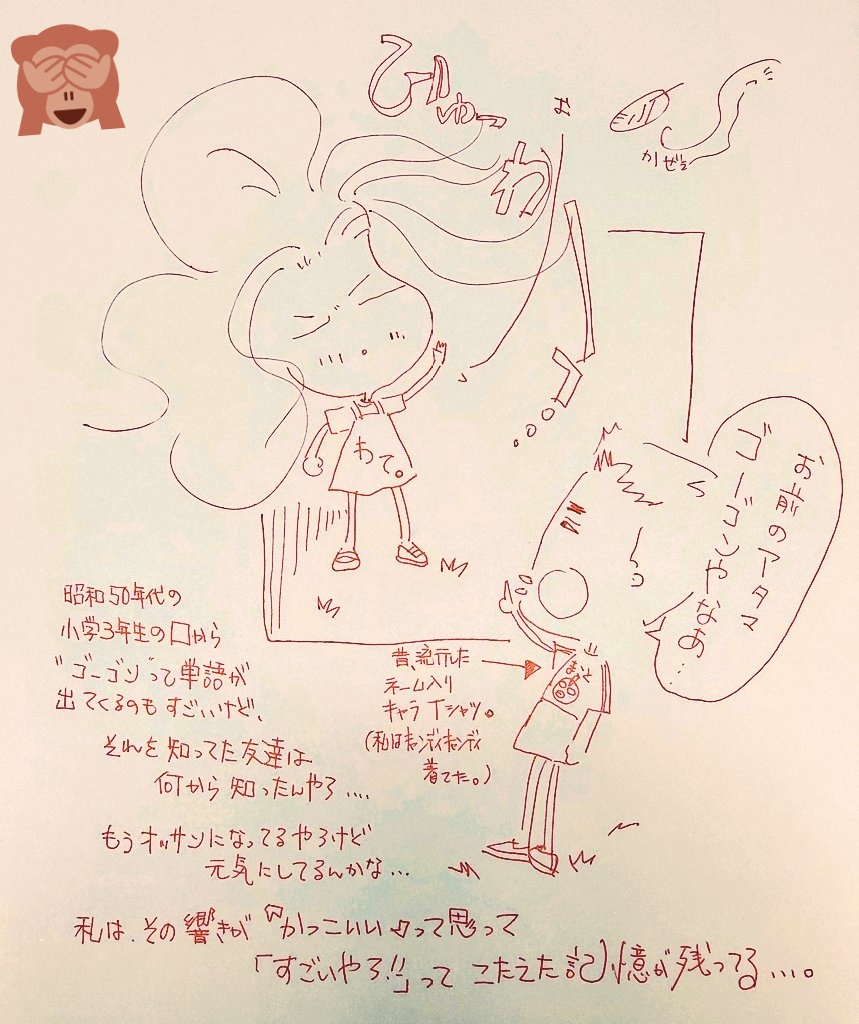 ひゅー
お
わ
かぜ
お前のアタマ
ゴーゴンやなぁ…
わて。
昭和50年代の
小学3年生の口から
"ゴーゴン"って単語が
出てくるのもすごいけど、
昔、流行した
ネーム入り
キャラTシャツ。
(私はキャンディキャンディ
着てた。)
それを知ってた友達は
何から知ったんやろ....
もうオッサンになってるやろけど
元気にしてるんかな...
私は、その響きが "かっこいい♪って思って
「すごいやろ!!」って こたえた記憶が残ってる....。